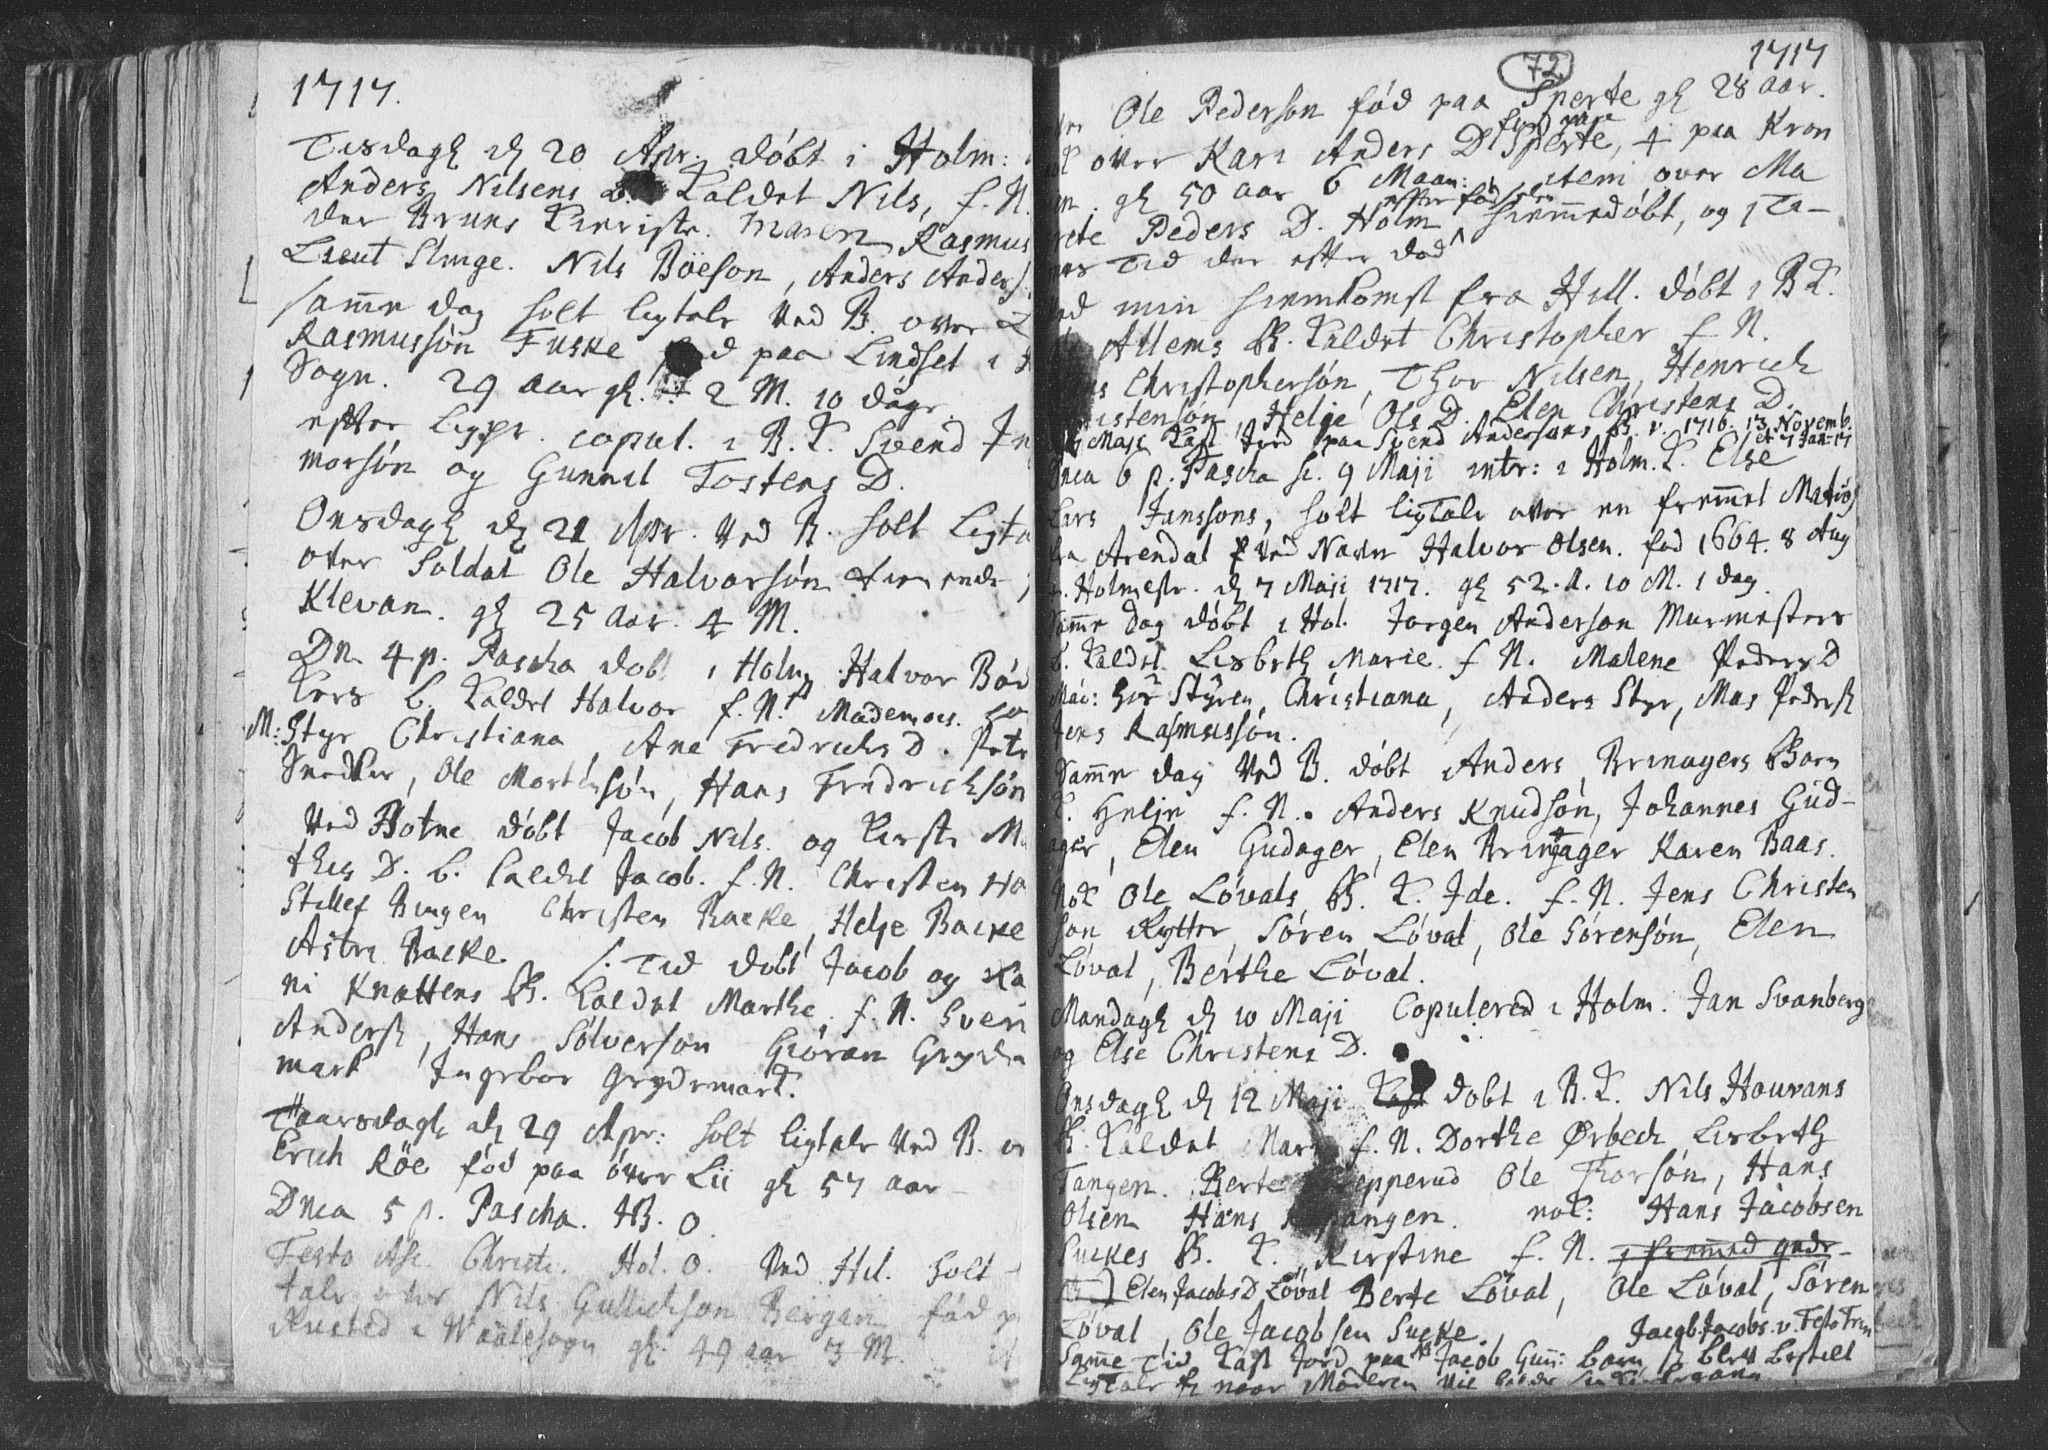 1717.
Tisdagen d 20 Apr. døbt i Holm:
Anders Nilsens B. Kaldet Nils, f. N.
der Bruns Maren Rasmus
Lieut Slinge. Nils Böeson, Anders Anders
samme dag holt ligtale ved B. over
Rasmussøn Fuske fød paa Lindset i
Sogn. 29 aar gl. 2 M. 10 dage
efter Ligpr. copul. i B. K. Svend In
morsøn og Gunnil Tostens D.
Onsdagl d 21 Apr. Ved B. holt Ligta
over Soldat Ole Halvorsøn tienende
Klevan. gl 25 Aar. 4 M.
Dn. 4 p. Pascha døbt i Holm Halvor Bød
kers b. Kaldet Halvor f. N. Mademois.
M: Styr Christiana, Ane Fredrichs D. Petr
Snedker, Ole Mortensøn, Hans Fredrichsøn
Ved Botne døbt Jacob Nils. og Kirsti M
this D. b. Caldet Jacob. f. N. Christen Ho
Stillef Bingen Christen Backe, Helje Backe
Astri Backe. s. Tid døbt Jacob og Ka
ri Knattens B. Kaldet Marthe, f. N. Sven
Anders, Hans Sølverson Giøran Gryde
mark Ingebor Grydemark.
Taarsdagl d 29 Apr: holt ligtale Ved B. ov
Erich Røe fød paa øvre Lii gl 57 aar
Dnca 5 p. Pascha. HB. O.
Festo Asc. Christi. Hol. O. Ved Hil. holt
tale over Nils Gullichson Bergan fød p
Rusted i Waalesogn gl. 49 aar 3 M.
72
1717
Ole Pederson fød paa Sperte gl 28 aar.
fød paa
over Kari Anders D Sperte, 4 paa Kron
gl 50 aar 6 Maan: item over Ma
efter fødselen
rete Peders D. Holm hiemmedøbt, og 1 Ti-
mes Tid der efter død
ved min hiemkomst fra Hill. døbt i B K.
Attems B. Kaldet Christopher f N.
Christophersøn, Thor Nilsen, Henrich
Christensøn, Helje Ols D. Elen Christens D.
Maji Kast Jord paa Svend Andersøns B. v. 1716. 13 Novemb.
et 7 Jan. 17
Dnca 6 p. Pascha sc. 9 Maji intr: i Holm. K. Else
Lars Janssons, holt ligtale over en fremmet Matros
fra Arendal ved Navn Halvor Olsen. fød 1664. 8 Aug
Holmestr. d 7 Maji 1717. gl 52. A. 10 M. 1 dag.
Samme dag døbt i Hol. Jorgen Anderson Murmesters
b. Kaldet Lisbeth Marie. f N. Malene Peders D
Mad: Styren, Christiana, Anders Styr, Mas Peders
Jens Rasmussøn.
Samme dag Ved B. døbt Anders Brinagers Barn
K. Helje f. N. Anders Knudsøn, Johannes Gud-
ager, Elen Gudager, Elen Brinager Karen Baas.
Nok Ole Løvals B. K. Ide. f. N. Jens Christen
son Rytter, Søren Løval, Ole Sørensøn, Elen
Løval, Berthe Løval.
Mandagl d 10 Maji Copulered i Holm. Jan Svanberg
og Else Christens D.
Onsdagl d 12 Maji Kast døbt i B. K. Nils Houvans
B. Kaldet Mari f. N. Dorthe Ørbech Lisbeth
Tangen. Berte Repperud Ole Thorsøn, Hans
Olsen Hans Tangen. nok: Hans Jacobsen
Suckes B. K. Kirstine f. N. i fremmed
Elen Jacobs D Løval Berte Løval, Ole Løval, Søren
Løval, Ole Jacobsen Sucke. Jacob Jacobs. v. Festo Trin
Samme Tid Kast Jord paa Jacob Gun: barn blev bestilt
Ligtale naar Moderen